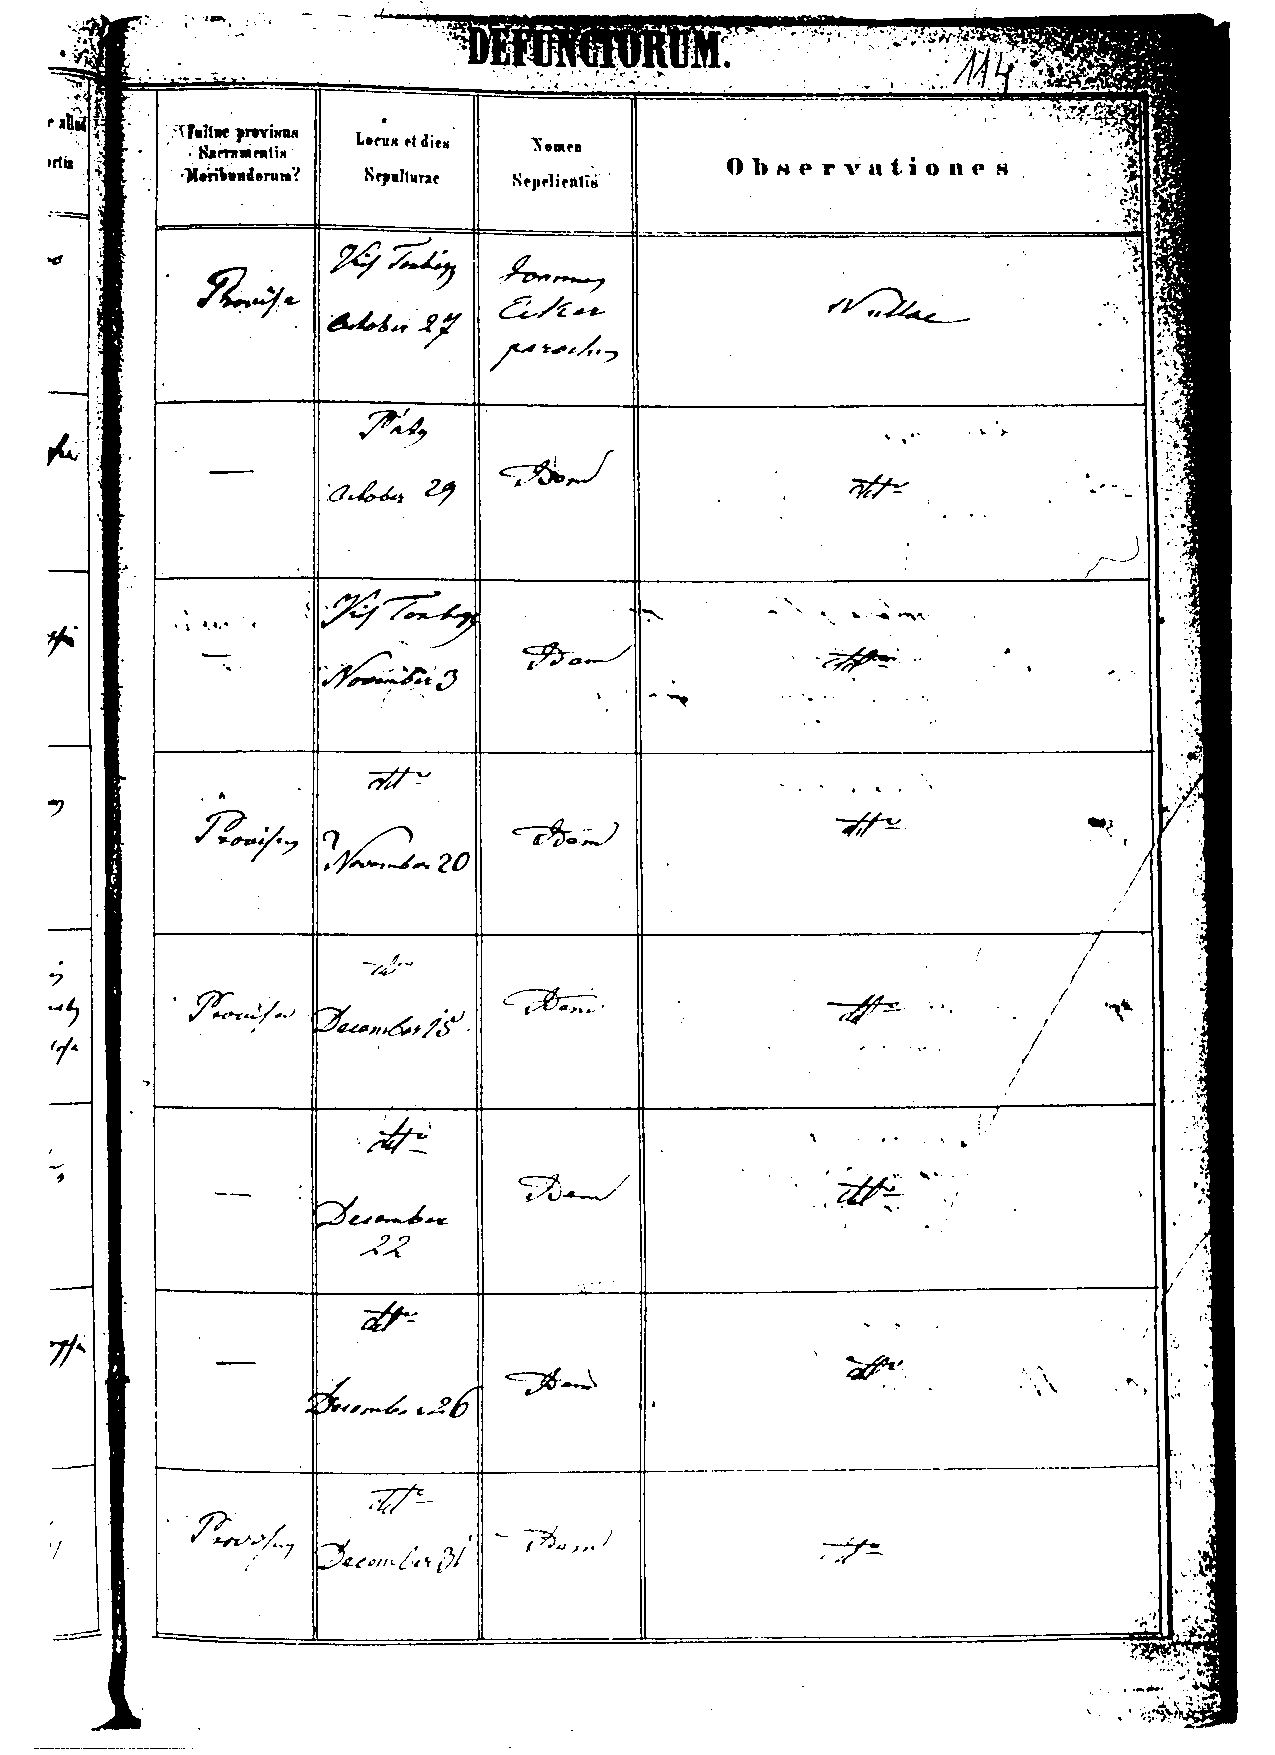 DEFUNCTORUM.
114
Fuitne provisus
Sacramentis
Moribundorum?
Locus et dies
Sepulturae
Nomen
Sepelientis
Observationes
Provisa
October 27
Joannes
Eiker
parochus
Nullae
Páty
—
October 29
Idem
dtto
—
November 3
Idem
dtto
dtto
Provisus
November 20
Idem
dtto
dtto
Provisa
December 15
Idem
dtto
dtto
—
December
22
Idem
dtto
dtto
—
December 26
Idem
dtto
dtto
Provisus
December 31
Idem
dtto